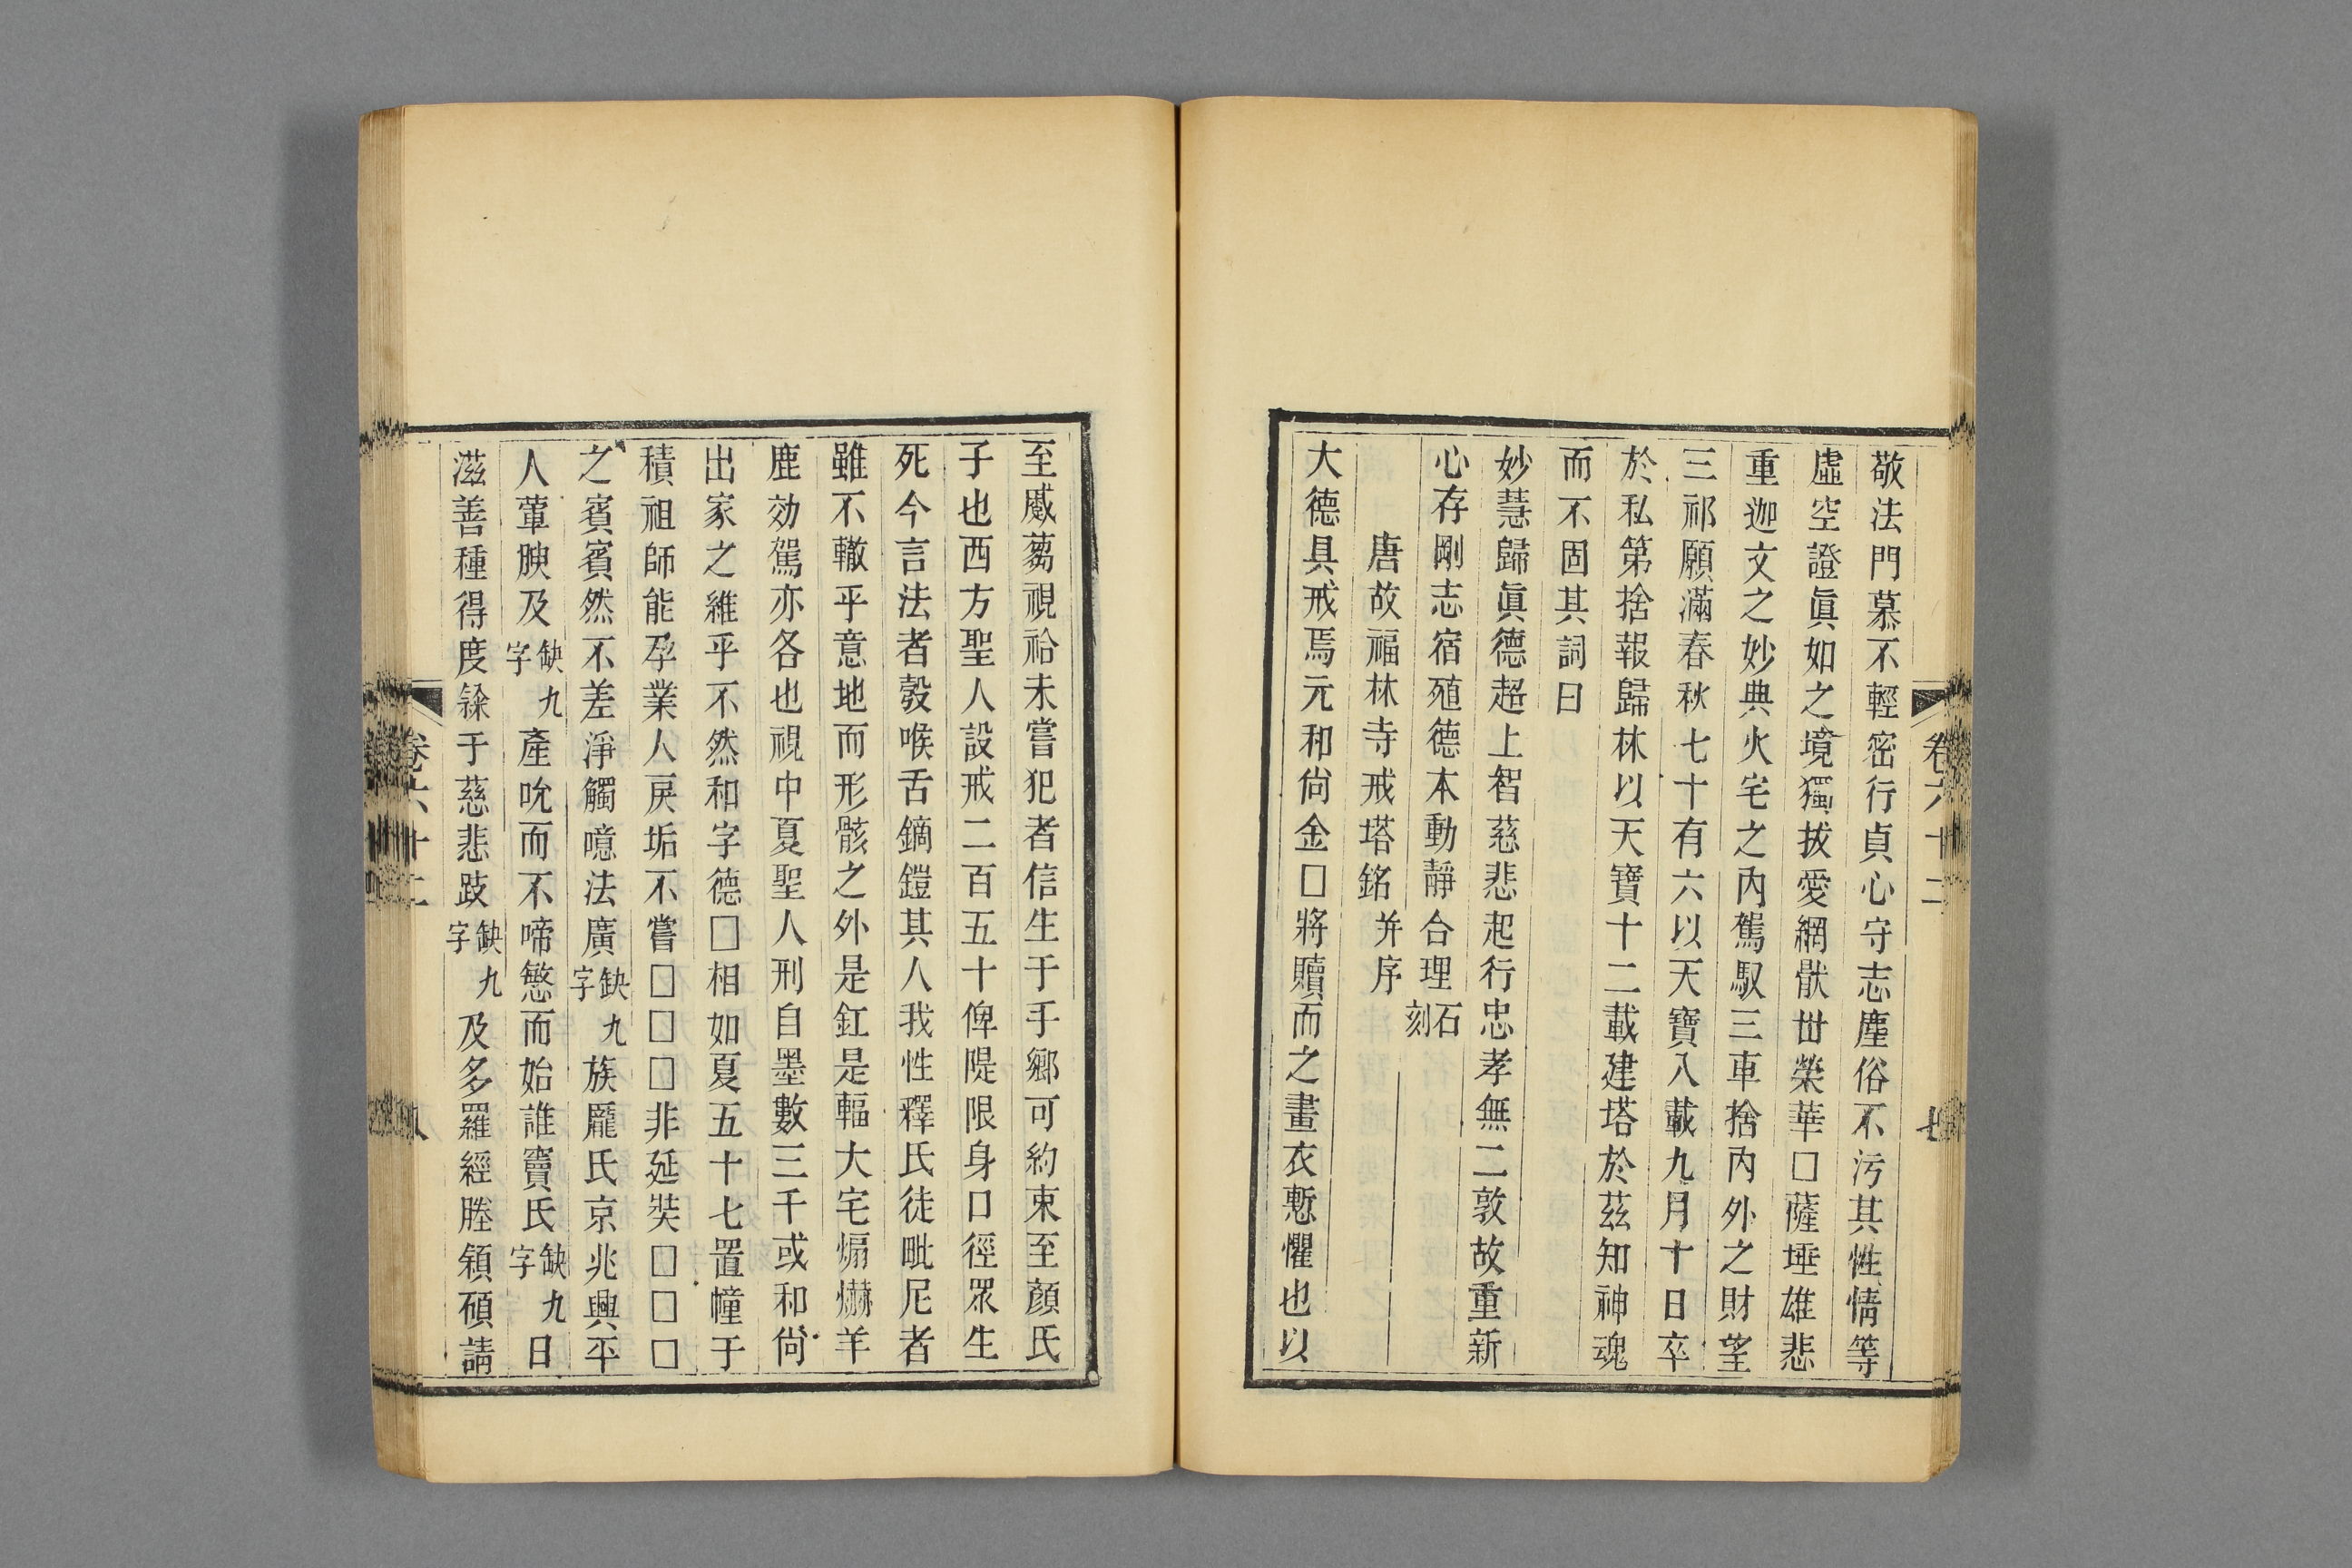 敬法門慕不輕密行貞心守志塵俗不污其性情等
虛空證眞如之境獨拔愛網猒世榮華□薩埵雄悲
重迦文之妙典火宅之內駕馭三車捨內外之財望
三祁願滿春秋七十有六以天寶八載九月十日卒
於私第捨報歸林以天寶十二載建塔於茲知神魂
而不固其詞曰
妙慧歸眞德超上智慈悲起行忠孝無二敦故重新
心存剛志宿殖德本動靜合理石刻
唐故福林寺戒塔銘并序
大德具戒焉元和尙金□將贖而之畫衣慙懼也以
卷六十二
七
至醆蒭視祫未嘗犯者信生于手鄉可約束至顏氏
子也西方聖人設戒二百五十俾隄限身口徑眾生
死今言法者彀喉舌鏑鎧其人我性釋氏徒毗尼者
雖不轍乎意地而形骸之外是釭是輻大宅煸爀羊
鹿効駕亦各也視中夏聖人刑自墨數三千或和尙
出家之維乎不然和字德□相如夏五十七置幢于
積祖師能孕業人戾垢不嘗□□□非延奘□□□
之賓賓然不差淨觸噫法廣缺九字族龎氏京兆興平
人葷腴及缺九字產吮而不啼慜而始誰竇氏缺九字日
滋善種得度錄于慈悲跂缺九字及多羅經塍領碩請
卷六十二
八